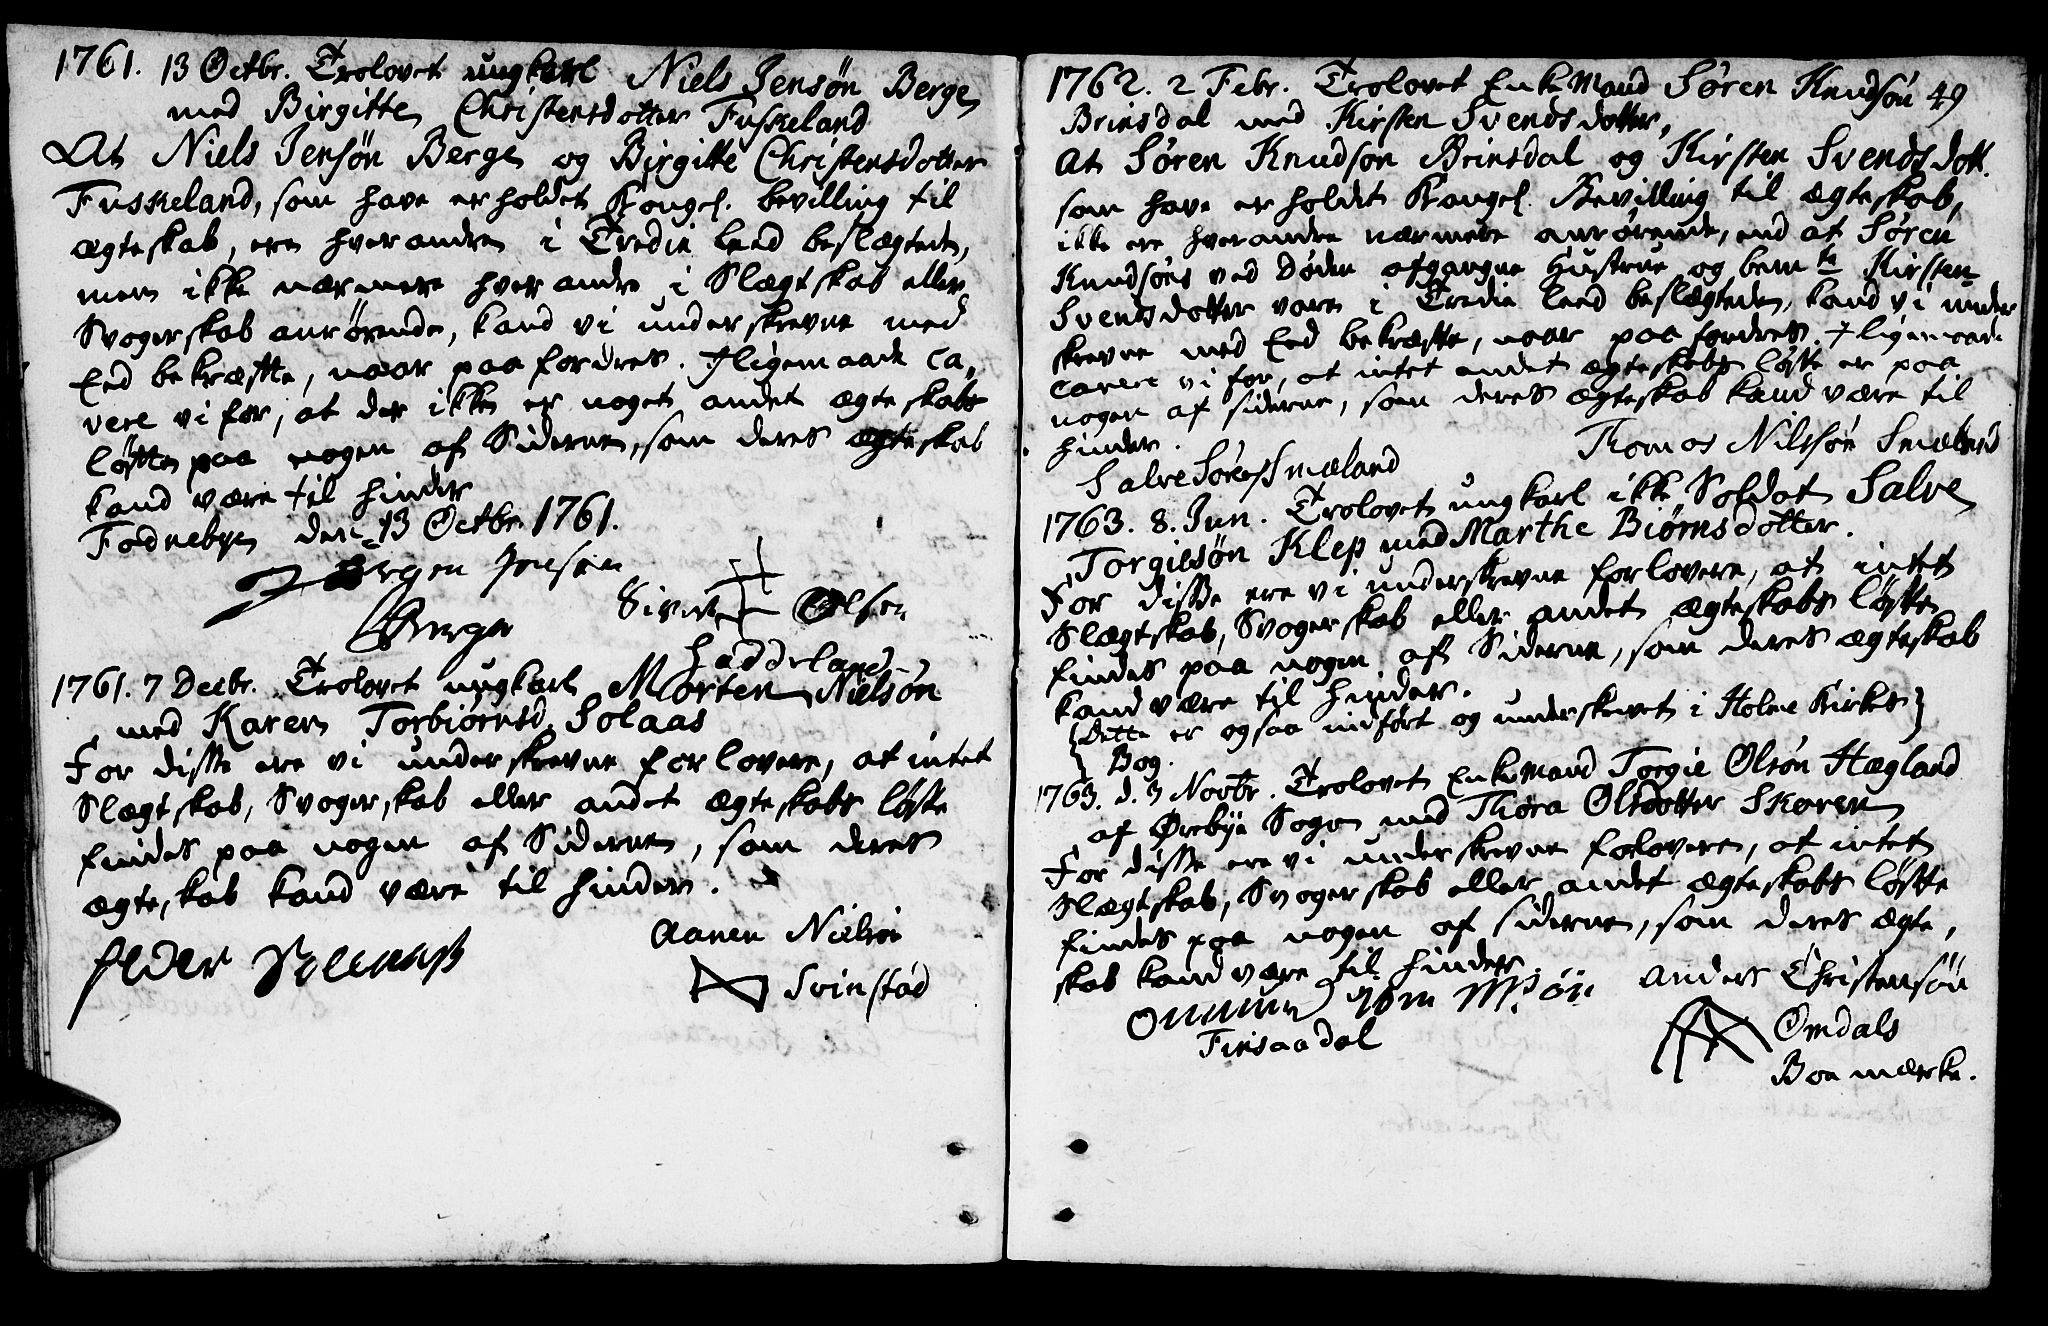 1761. 13 Octbr. Trolovet ungkarl Niels Jensøn Berge
med Birgitte Christensdotter Fuskeland
At Niels Jensøn Berge og Birgitte Christensdotter
Fuskeland, som have erholdet Kongel. bevilling til
ægteskab, ere hverandre i Tredie Leed beslægtede,
men ikke nærmere hverandre i Slægtskab eller
Svogerskab anrørende, kand vi underskrevne med
Eed bekræfte, naar paa fordres. Iligemaade ca,
vere vi for, at der ikke er noget andet ægteskabs
løfte paa nogen af Siderne, som deres ægteskab
kand være til hinder
Fodnebye den 13 Octbr 1761.
Jørgen Jensen
Berge
Sivert Olsen
Haddeland
1761. 7 Decbr. Trolovet ungkarl Morten Nielsøn
med Karen Torbiørnsd. Solaas
For disse ere vi underskrevne forlovere, at intet
Slægtskab, Svogerskab eller andet ægteskabs løfte
findes paa nogen af Siderne, som deres
ægteskab kand være til hinder.
Peder
Aanen Nielsøn
Svinstød
1762. 2 Febr. Trolovet Enkemand Søren Knudsøn 49
Brinsdal med Kirsten Svendsdotter,
At Søren Knudsøn Brinsdal og Kirsten Svendsdott.
som have erholdet Kongel. Bevilling til ægteskab,
ikke ere hverandre nærmere anrørende, end at Søren
Knudsøns ved Døden afgangne Hustrue og bemte Kirsten
Svendsdotter vare i Tredie leed beslægtede, kand vi under
skrevne med Eed bekræfte, naar paa fordres. Iligemaade
cavere vi for, at intet andet ægteskabs løfte er paa
nogen af siderne, som deres ægteskab kand være til
hinder.
Thomas Nilsøn Smæland
Salve Sørens Smæland
1763. 8. Jun. Trolovet ungkarl ikke Soldat Salve
Torgiesøn Klep med Marthe Biørnsdotter.
For disse ere vi underskrevne forlovere, at intet
Slægtskab, Svogerskab eller andet ægteskabs løfte
findes paa nogen af Siderne, som deres ægteskab
kand være til hinder.
{Dette er ogsaa indført og underskrevet i Holme Kirkes}
Bog.
1763. d. 3 Novbr. Trolovet Enkemand Torgie Olsøn Hægland
af Ørebye Sogn med Thora Olsdotter Skoren
For disse ere vi underskrevne forlovere, at intet
Slægtskab, Svogerskab eller andet ægteskabs løfte
findes paa nogen af siderne, som deres ægte,
skab kand være til hinder
Finsaadal
Anders Christensøn
Omdals
Boe mærke.